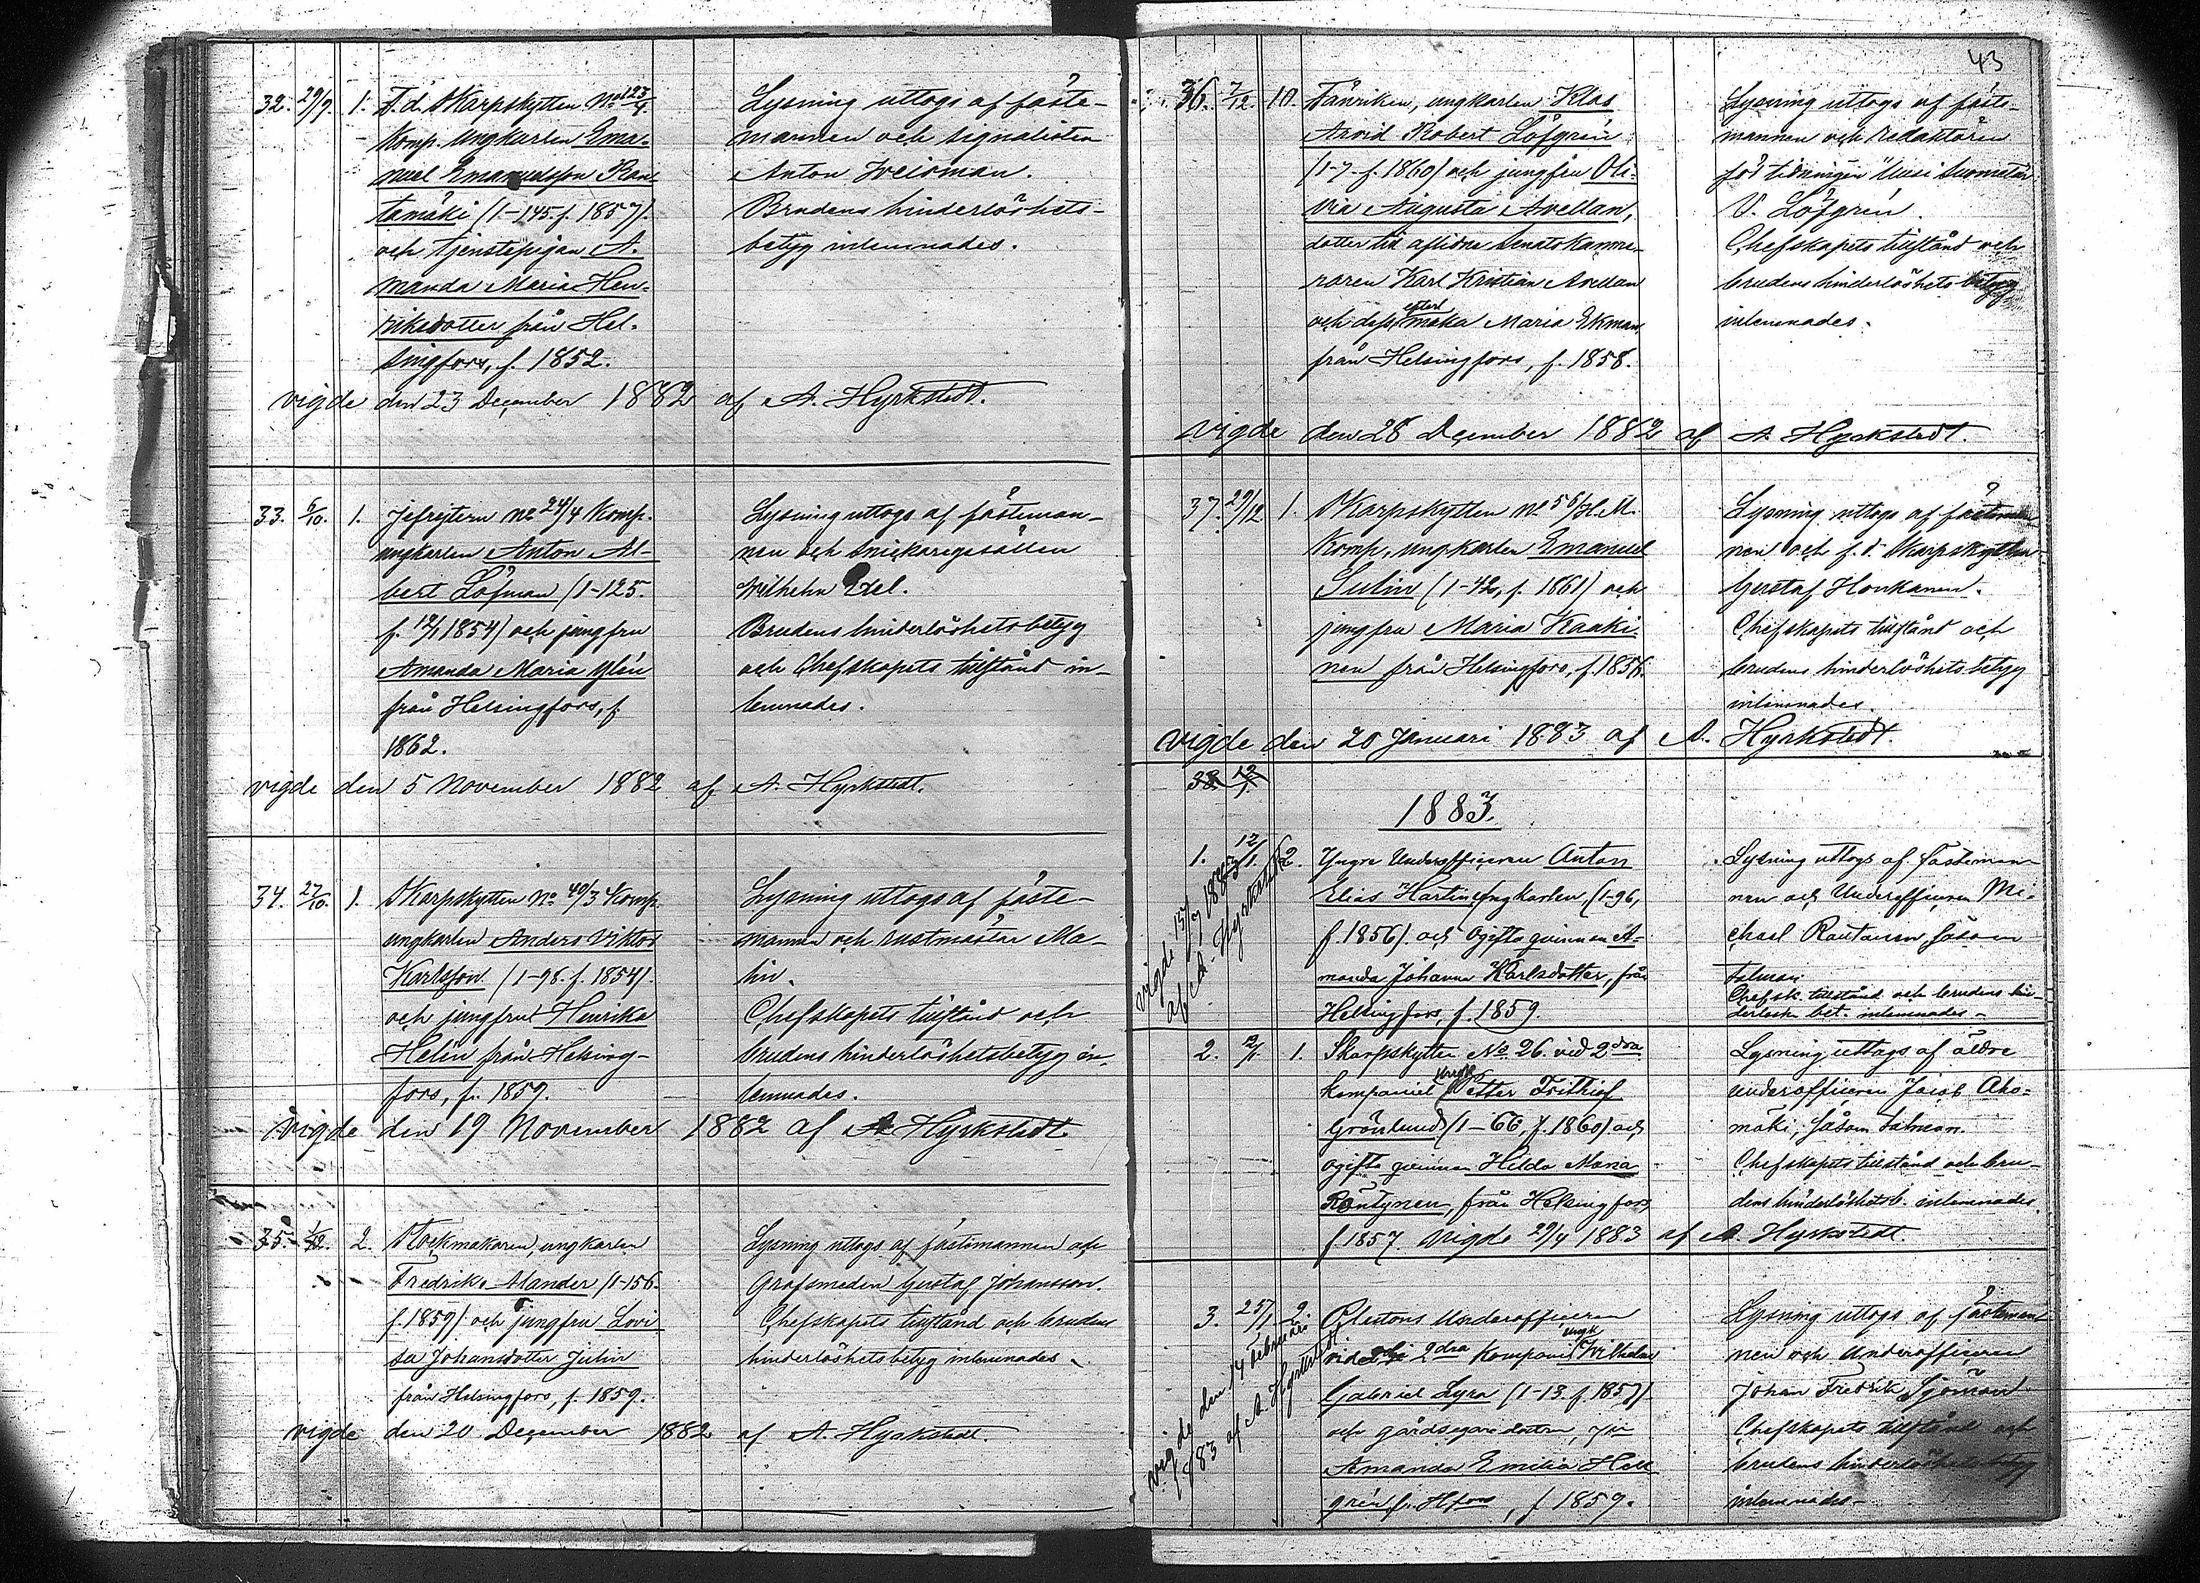 32. 29/9. 1. F. d. Skarpskytten No 123/4.
Komp. ungkarlen Ema-
nuel Emanuelsson Ran-
tamäki (1-145. f. 1857).
och tjenstepigan A-
manda Maria Hen-
riksdotter från Hel-
singfors, f. 1852.
Lysning uttogs af fäste-
mannen och signalisten
Anton
Brudens hinderlöshets-
betyg inlemnades.
vigde den 23 December 1882 af A. Hyrkstedt.
33. 6/10. 1. Jefrejtern No 24/4 Komp.
ungkarlen Anton Al-
bert Löfman (1-125.
f. 12/1 1854) och jungfru
Amanda Maria Ylén
från Helsingfors, f.
1862.
Lysning uttogs af fästeman-
nen och snickaregesällen
Wilhelm
Brudens hinderlöshetsbetyg
och Chefskapets tillstånd in-
lemnades.
vigde den 5 November 1882 af A. Hyrkstedt.
34. 27/10. 1. Skarpskytten No 40/3 Komp.
ungkarlen Anders Viktor
Karlsson (1-98. f. 1854).
och jungfru Henrika
Helin från Helsing-
fors, f. 1859.
Lysning uttogs af fäste-
mannen och rustmästar Ma-
lin.
Chefskapets tillstånd och
brudens hinderlöshetsbetyg in-
lemnades.
vigde den 19 November 1882 af A Hyrkstedt
35. 2. Stockmakaren, ungkarlen
Fredrik Mander (1-156.
f. 1859) och jungfru Lovi-
sa Johansdotter Julin
från Helsingfors, f. 1859.
Lysning uttogs af fästemannen och
Grofsmeden Gustaf Johansson.
Chefskapets tillstånd och brudens
hinderlöshetsbetyg inlemnades.
vigde den 20 December 1882 af A. Hyrkstedt.
43
36. 7/12. 10. Fänriken, ungkarlen Klas
Arvid Robert Löfgrén
(1-7-f. 1860) och jungfru Oli-
via Augusta Avellan,
dotter till aflidne senatskamre-
raren Karl Kristian Avellan
och dess efterl maka Maria Ekman
från Helsingfors, f. 1858.
Lysning uttogs af fäste-
mannen och redaktören
för tidningen "Uusi Suometar
V. Löfgrén.
Chefskapets tillstånd och
brudens hinderlöshets betyg
inlemnades.
vigde den 28 December 1882 af A. Hyrkstedt.
37. 29/12 1. Skarpskytten No 56/H. M.
Komp, ungkarlen Emanuel
Sulin (1-42, f. 1861) och
jungfru Maria Kaaki-
nen från Helsingfors, f. 1856.
Lysning uttogs af fästeman
nen och f. d. Skarpskytten
Gustaf Honkanen.
Chefskapets tillstånd och
brudens hinderlöshets betyg
inlemnades.
vigde den 20 Januari 1883 af A. Hyrkstedt.
38 12/1.
1883.
1. 12/1. 2. Yngre Underofficeren Anton
Elias Hartin, ungkarlen, (1-96,
f. 1856). och ogifta qvinnan A-
manda Johanna Karlsdotter, från
Helsingfors, f. 1859.
Lysning uttogs af fästeman-
nen och Underofficeren Mi-
chael Rautanen såsom
talman.
Chefsk. tillstånd och brudens hin-
derlösh. bet. inlemnades-
vigde 1883
af A. Hyrkstedt
2. 1. Skarpskytten No. 26. vid 2dra
Kompaniet ungk Petter Frithiof
Grönlund (1-66, f. 1860) och
ogifta qvinnan Hilda Maria
Röntynen, från Helsingfors,
f. 1857. Vigde 29/4 1883 af A. Hyrkstedt
Lysning uttogs af äldre
underofficeren Jacob Aho-
mäki, såsom talman.
Chefskapets tillstånd och bru-
dens hinderlöshetsb. inlemnades.
3. 25/1 2. Plutons Underofficeren
vid 2dra Kompaniet ungk Wilhelm
Gabriel Lyra (1-13. f. 1857)
och gårdsegare dottren,
Amanda Emilia Hell
grén fr. Hfors, f 1859.
Lysning uttogs af fästeman-
nen och Underofficeren
Johan Fredrik Sjöman.
Chefskapets tillstånd och
brudens hinderlöshetsbetyg
inlemnades-
vigde den 14 februari
1883 af A. Hyrkstedt